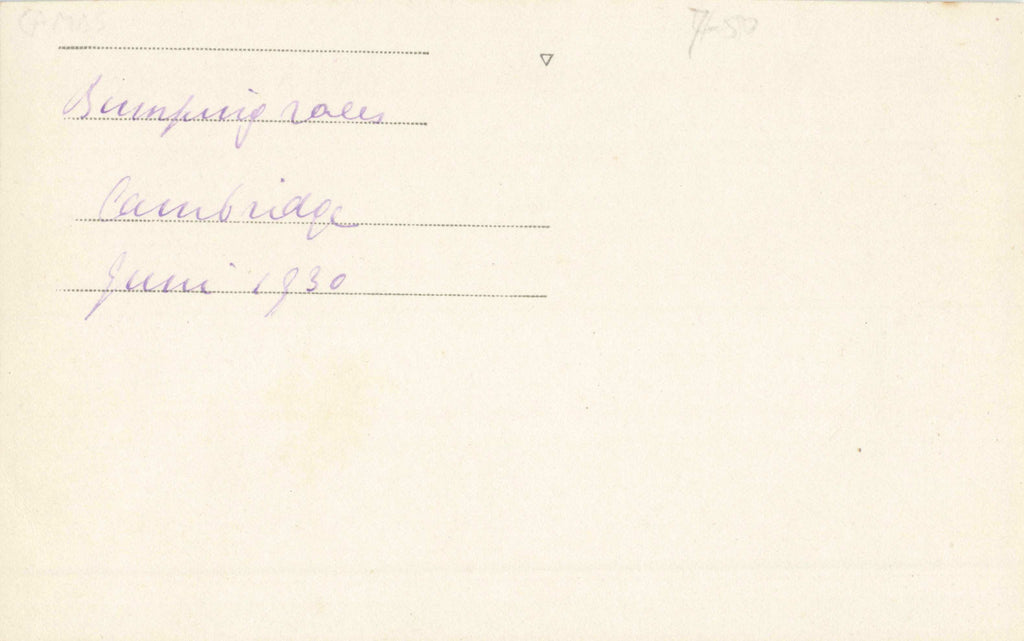 CAMBS
7/-50
Bumping races
Cambridge
Juni 1930